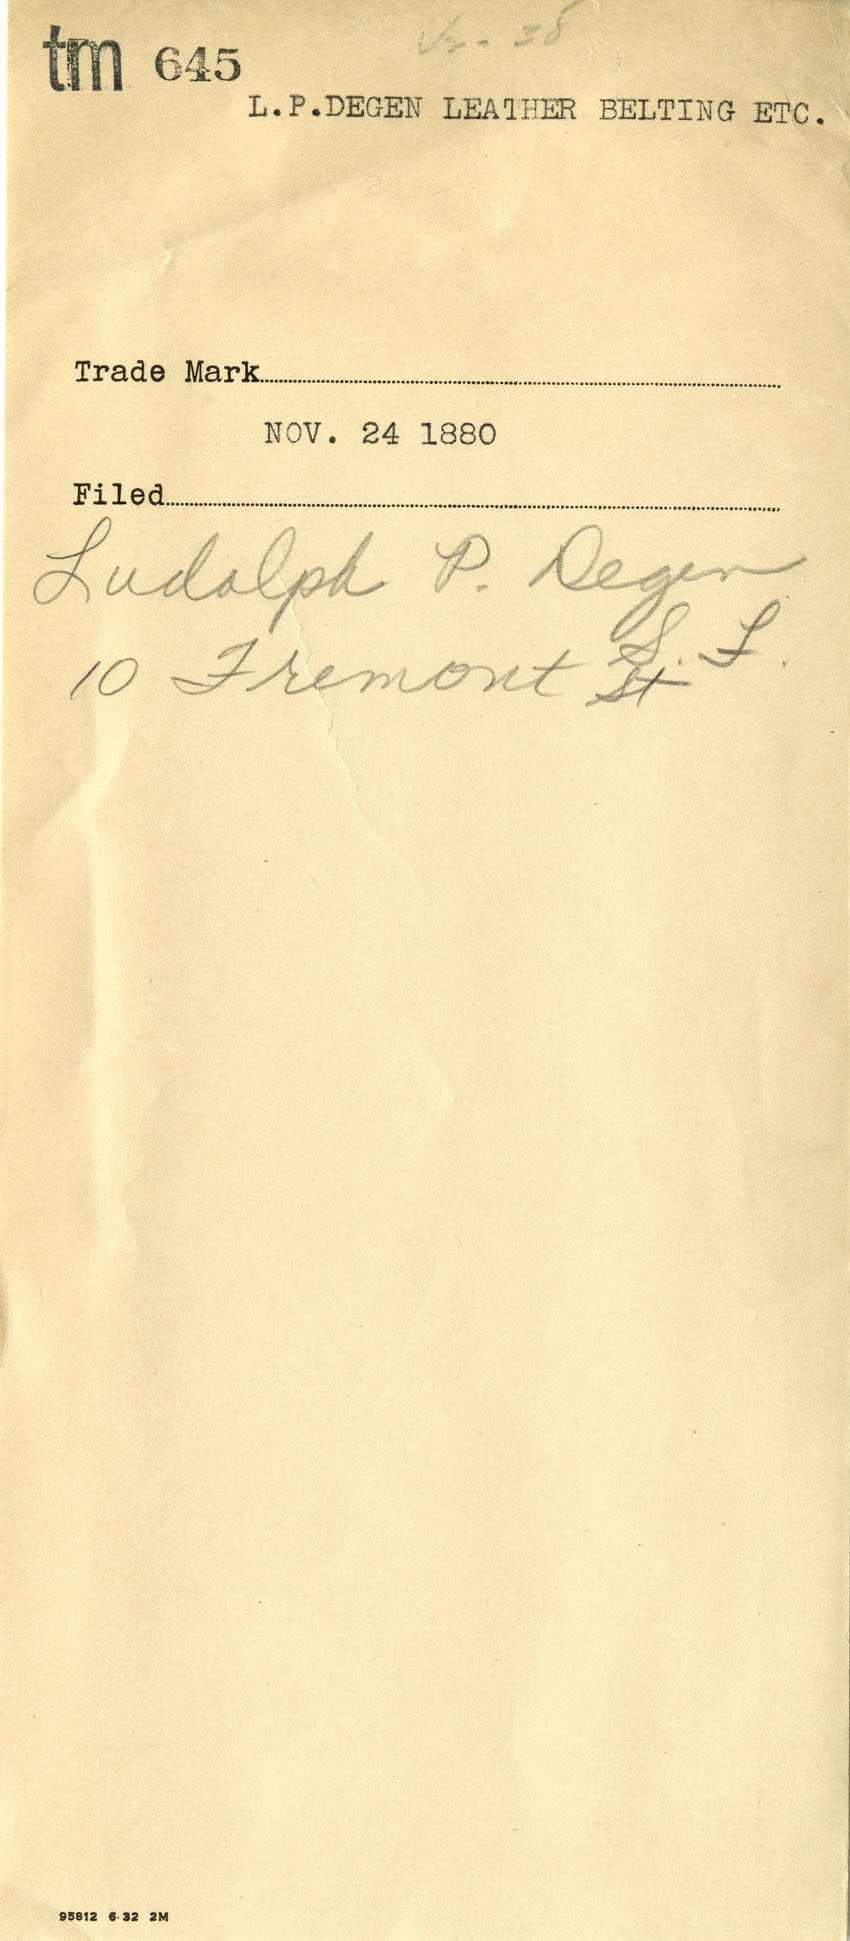 tm 645
L.P.DEGEN LEATHER BELTING ETC.
Trade Mark
NOV. 24 1880
Filed
Ludolph P. Degen
S. F.
10 Fremont St
95812 6-32 2M